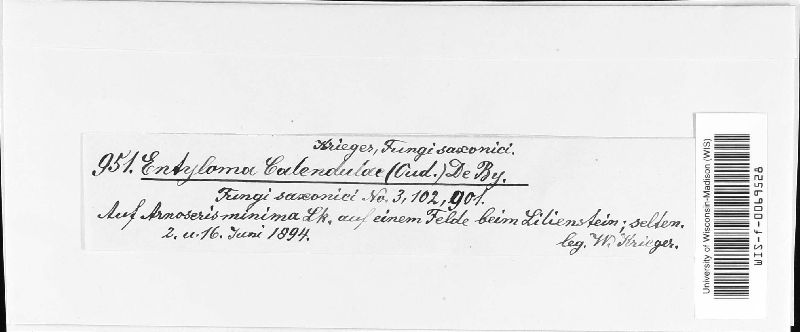 Krieger, Fungi saxonici.
951. Entyloma Calendulae (Oud.) De By.
Fungi saxonici No. 3, 102, 901.
Auf Arnoseris minima Lk. auf einem Felde beim Lilienstein; selten.
2. u. 16. Juni 1894.
leg. W. Krieger.
University of Wisconsin-Madison (WIS)
WIS-f-0069528